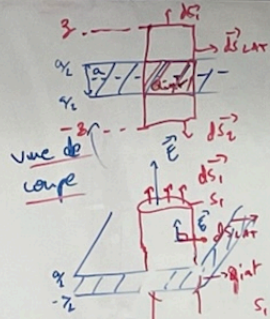 z
dS₁
a/2
a
dS LAT
-a/2
Qint
-z
dS₂
vue de
coupe
E
dS₁
S₁
E
dS LAT
a/2
Qint
-a/2
S₁